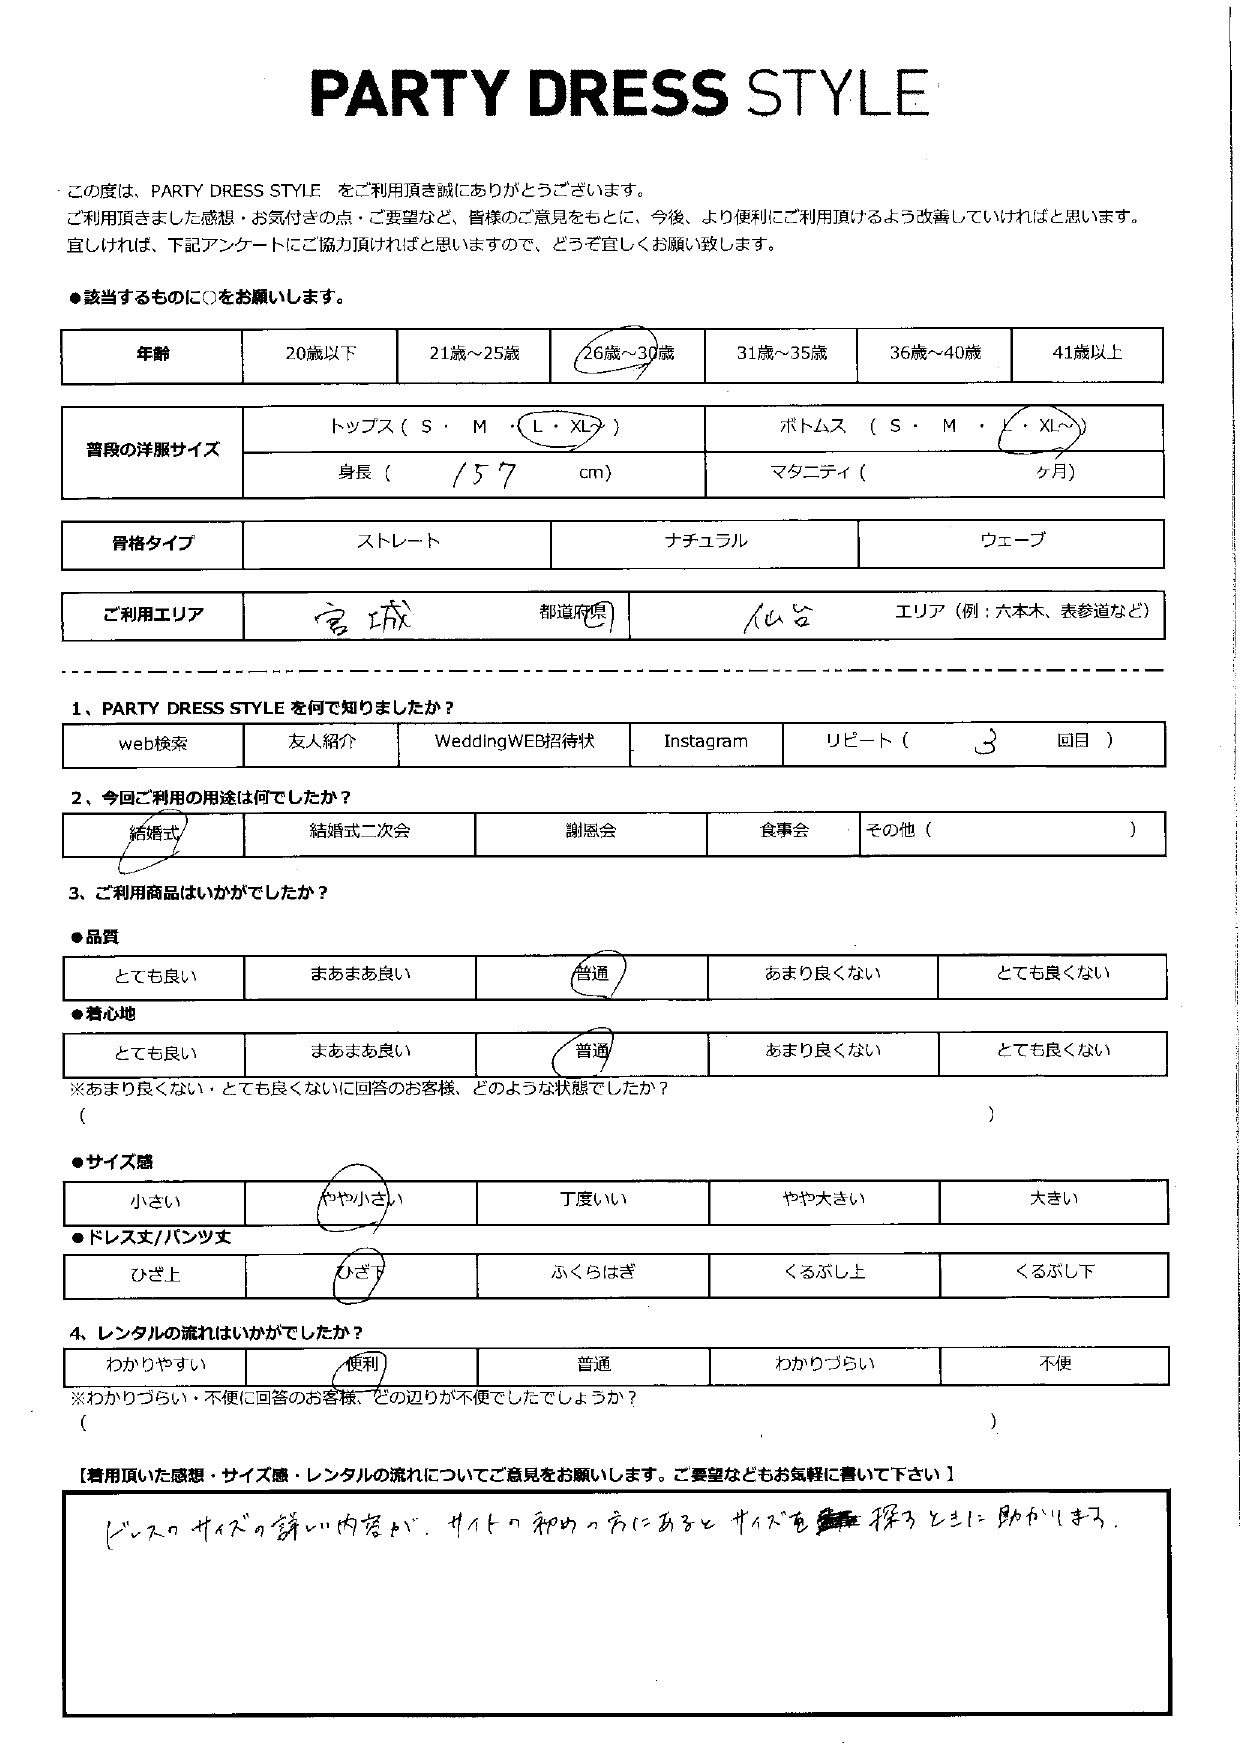 PARTY DRESS STYLE
この度は、PARTY DRESS STYLE をご利用頂き誠にありがとうございます。
ご利用頂きました感想・お気付きの点・ご要望など、皆様のご意見をもとに、今後、より便利にご利用頂けるよう改善していければと思います。
宜しければ、下記アンケートにご協力頂ければと思いますので、どうぞ宜しくお願い致します。
●該当するものに○をお願いします。
年齢 20歳以下 21歳～25歳 26歳～30歳 31歳～35歳 36歳～40歳 41歳以上
普段の洋服サイズ トップス ( S ・ M ・ L ・ XL～ ) ボトムス ( S ・ M ・ L ・ XL～ )
身長 ( 157 cm) マタニティ ( ヶ月)
骨格タイプ ストレート ナチュラル ウェーブ
ご利用エリア 宮城 都道府県 仙台 エリア (例：六本木、表参道など)
1、PARTY DRESS STYLE を何で知りましたか？
web検索 友人紹介 WeddingWEB招待状 Instagram リピート ( 3 回目 )
2、今回ご利用の用途は何でしたか？
結婚式 結婚式二次会 謝恩会 食事会 その他 ( )
3、ご利用商品はいかがでしたか？
●品質
とても良い まあまあ良い 普通 あまり良くない とても良くない
●着心地
とても良い まあまあ良い 普通 あまり良くない とても良くない
※あまり良くない・とても良くないに回答のお客様、どのような状態でしたか？
( )
●サイズ感
小さい やや小さい 丁度いい やや大きい 大きい
●ドレス丈/パンツ丈
ひざ上 ひざ下 ふくらはぎ くるぶし上 くるぶし下
4、レンタルの流れはいかがでしたか？
わかりやすい 便利 普通 わかりづらい 不便
※わかりづらい・不便に回答のお客様、どの辺りが不便でしたでしょうか？
( )
【着用頂いた感想・サイズ感・レンタルの流れについてご意見をお願いします。ご要望などもお気軽に書いて下さい 】
ドレスのサイズの詳しい内容が、サイトの初めの方にあるとサイズを探るときに助かります。